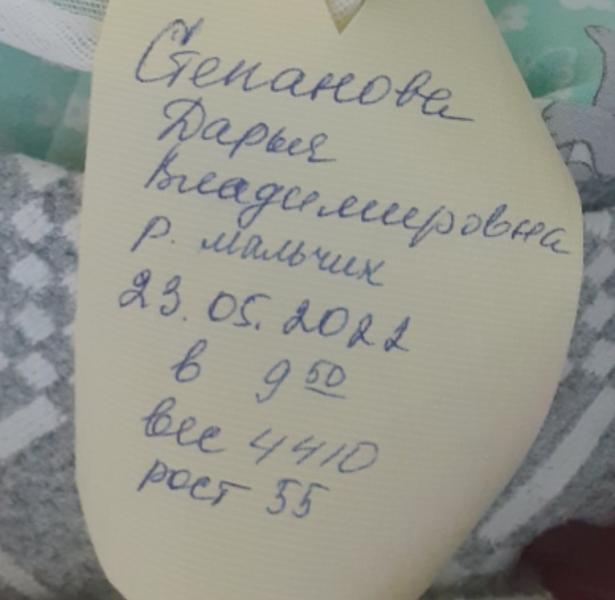 Степанова
Дарья
Владимировна
р. мальчик
23.05.2022
в 9 50
вес 4410
рост 55